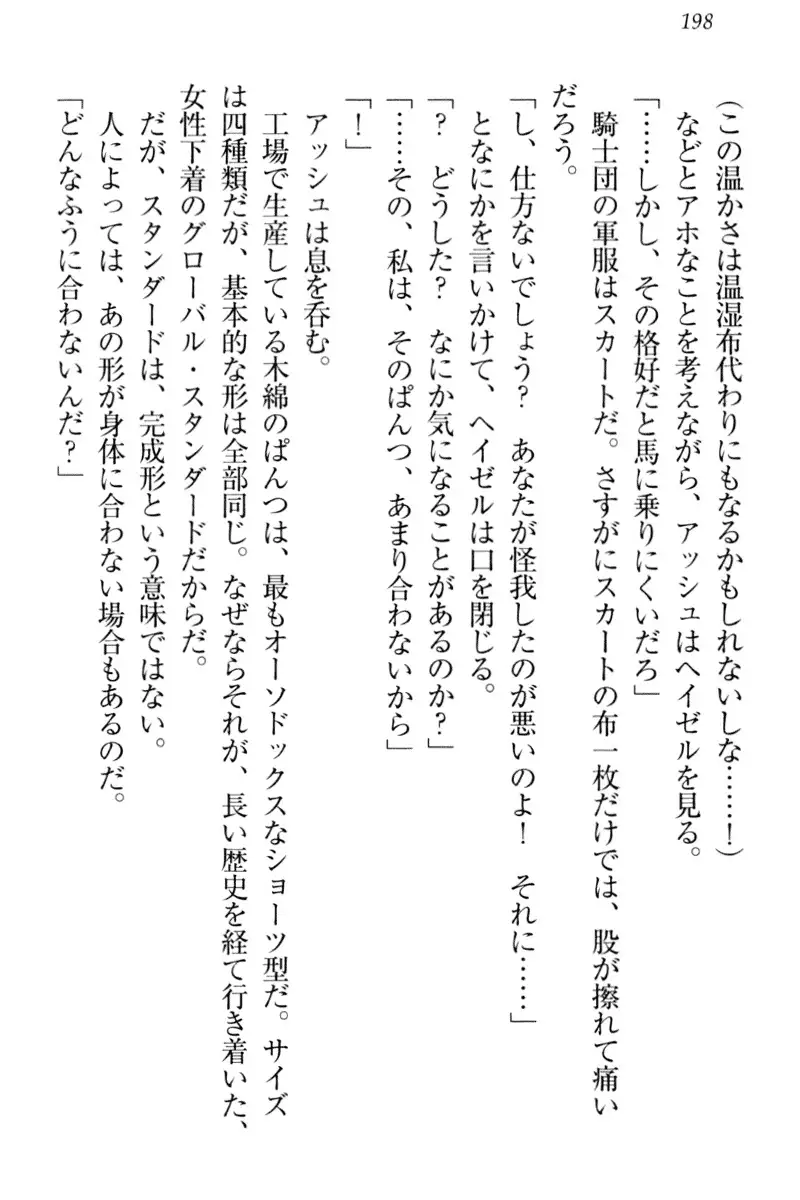 198
(この温かさは温湿布代わりにもなるかもしれないしな……！)
などとアホなことを考えながら、アッシュはヘイゼルを見る。
「……しかし、その格好だと馬に乗りにくいだろ」
騎士団の軍服はスカートだ。さすがにスカートの布一枚だけでは、股が擦れて痛い
だろう。
「し、仕方ないでしょう？　あなたが怪我したのが悪いのよ！　それに……」
となにかを言いかけて、ヘイゼルは口を閉じる。
「？　どうした？　なにか気になることがあるのか？」
「……その、私は、そのぱんつ、あまり合わないから」
「！」
アッシュは息を呑む。
工場で生産している木綿のぱんつは、最もオーソドックスなショーツ型だ。サイズ
は四種類だが、基本的な形は全部同じ。なぜならそれが、長い歴史を経て行き着いた、
女性下着のグローバル・スタンダードだからだ。
だが、スタンダードは、完成形という意味ではない。
人によっては、あの形が身体に合わない場合もあるのだ。
「どんなふうに合わないんだ？」